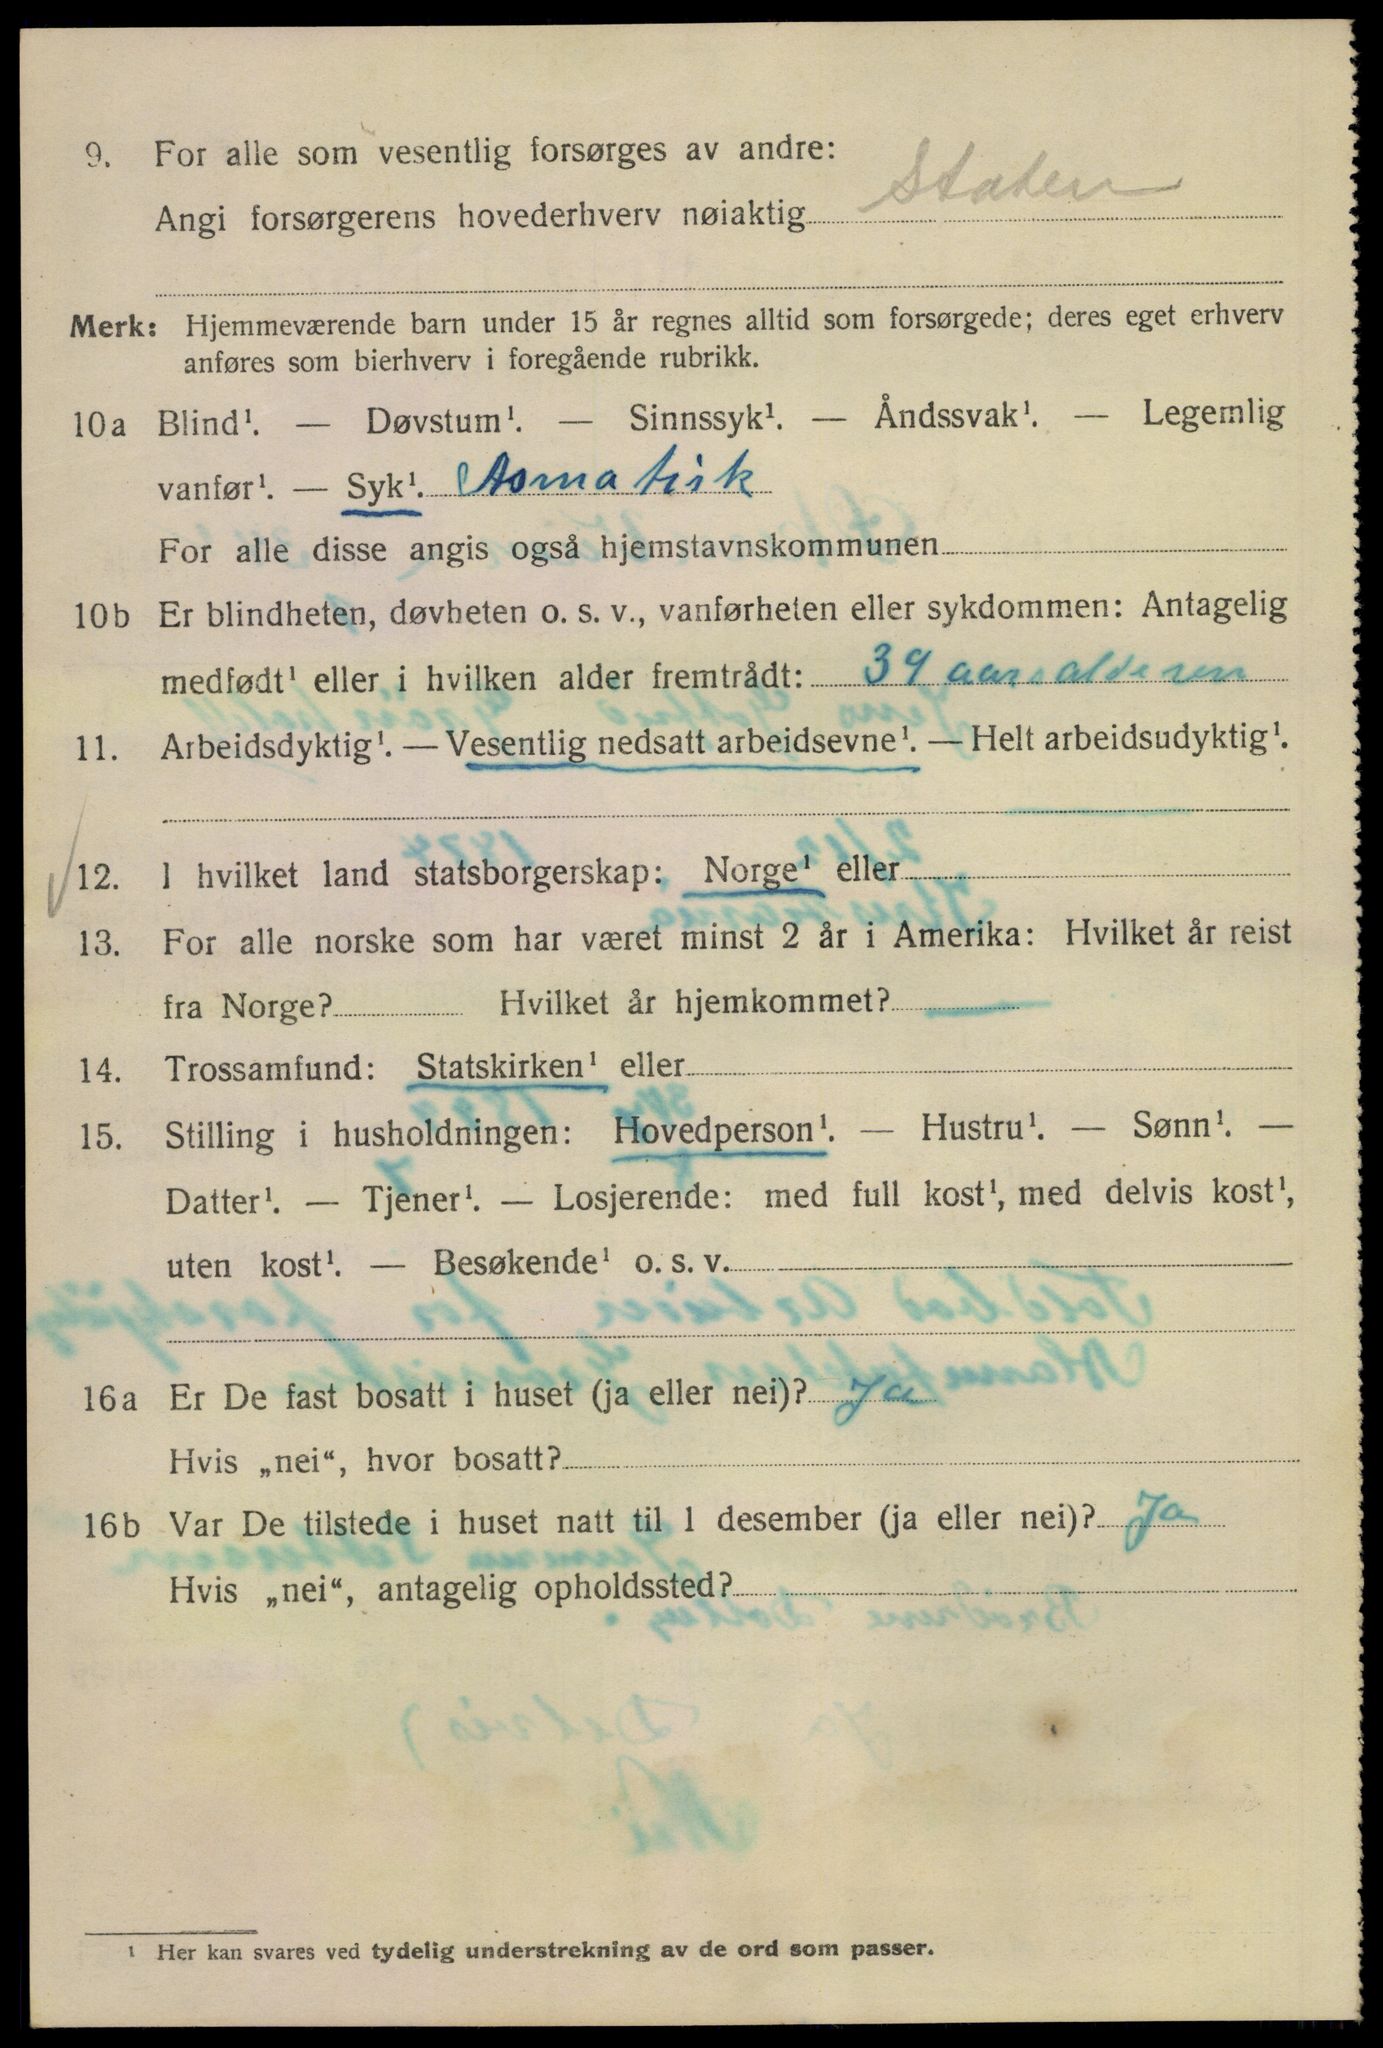 9. For alle som vesentlig forsørges av andre:
Angi forsørgerens hovederhverv nøiaktig Staten
Merk: Hjemmeværende barn under 15 år regnes alltid som forsørgede; deres eget erhverv
anføres som bierhverv i foregående rubrikk.
10a Blind¹. — Døvstum¹. — Sinnssyk¹. — Åndssvak¹. — Legemlig
vanfør¹. — Syk¹. Asmatisk
For alle disse angis også hjemstavnskommunen
10b Er blindheten, døvheten o. s. v., vanførheten eller sykdommen: Antagelig
medfødt¹ eller i hvilken alder fremtrådt: 39 aars alderen
11. Arbeidsdyktig¹. — Vesentlig nedsatt arbeidsevne¹. — Helt arbeidsudyktig¹.
12. I hvilket land statsborgerskap: Norge¹ eller
13. For alle norske som har været minst 2 år i Amerika: Hvilket år reist
fra Norge? Hvilket år hjemkommet? —
14. Trossamfund: Statskirken¹ eller
15. Stilling i husholdningen: Hovedperson¹. — Hustru¹. — Sønn¹. —
Datter¹. — Tjener¹. — Losjerende: med full kost¹, med delvis kost¹,
uten kost¹. — Besøkende¹ o. s. v.
16a Er De fast bosatt i huset (ja eller nei)? Ja
Hvis „nei“, hvor bosatt?
16b Var De tilstede i huset natt til 1 desember (ja eller nei)? Ja
Hvis „nei“, antagelig opholdssted?
¹ Her kan svares ved tydelig understrekning av de ord som passer.